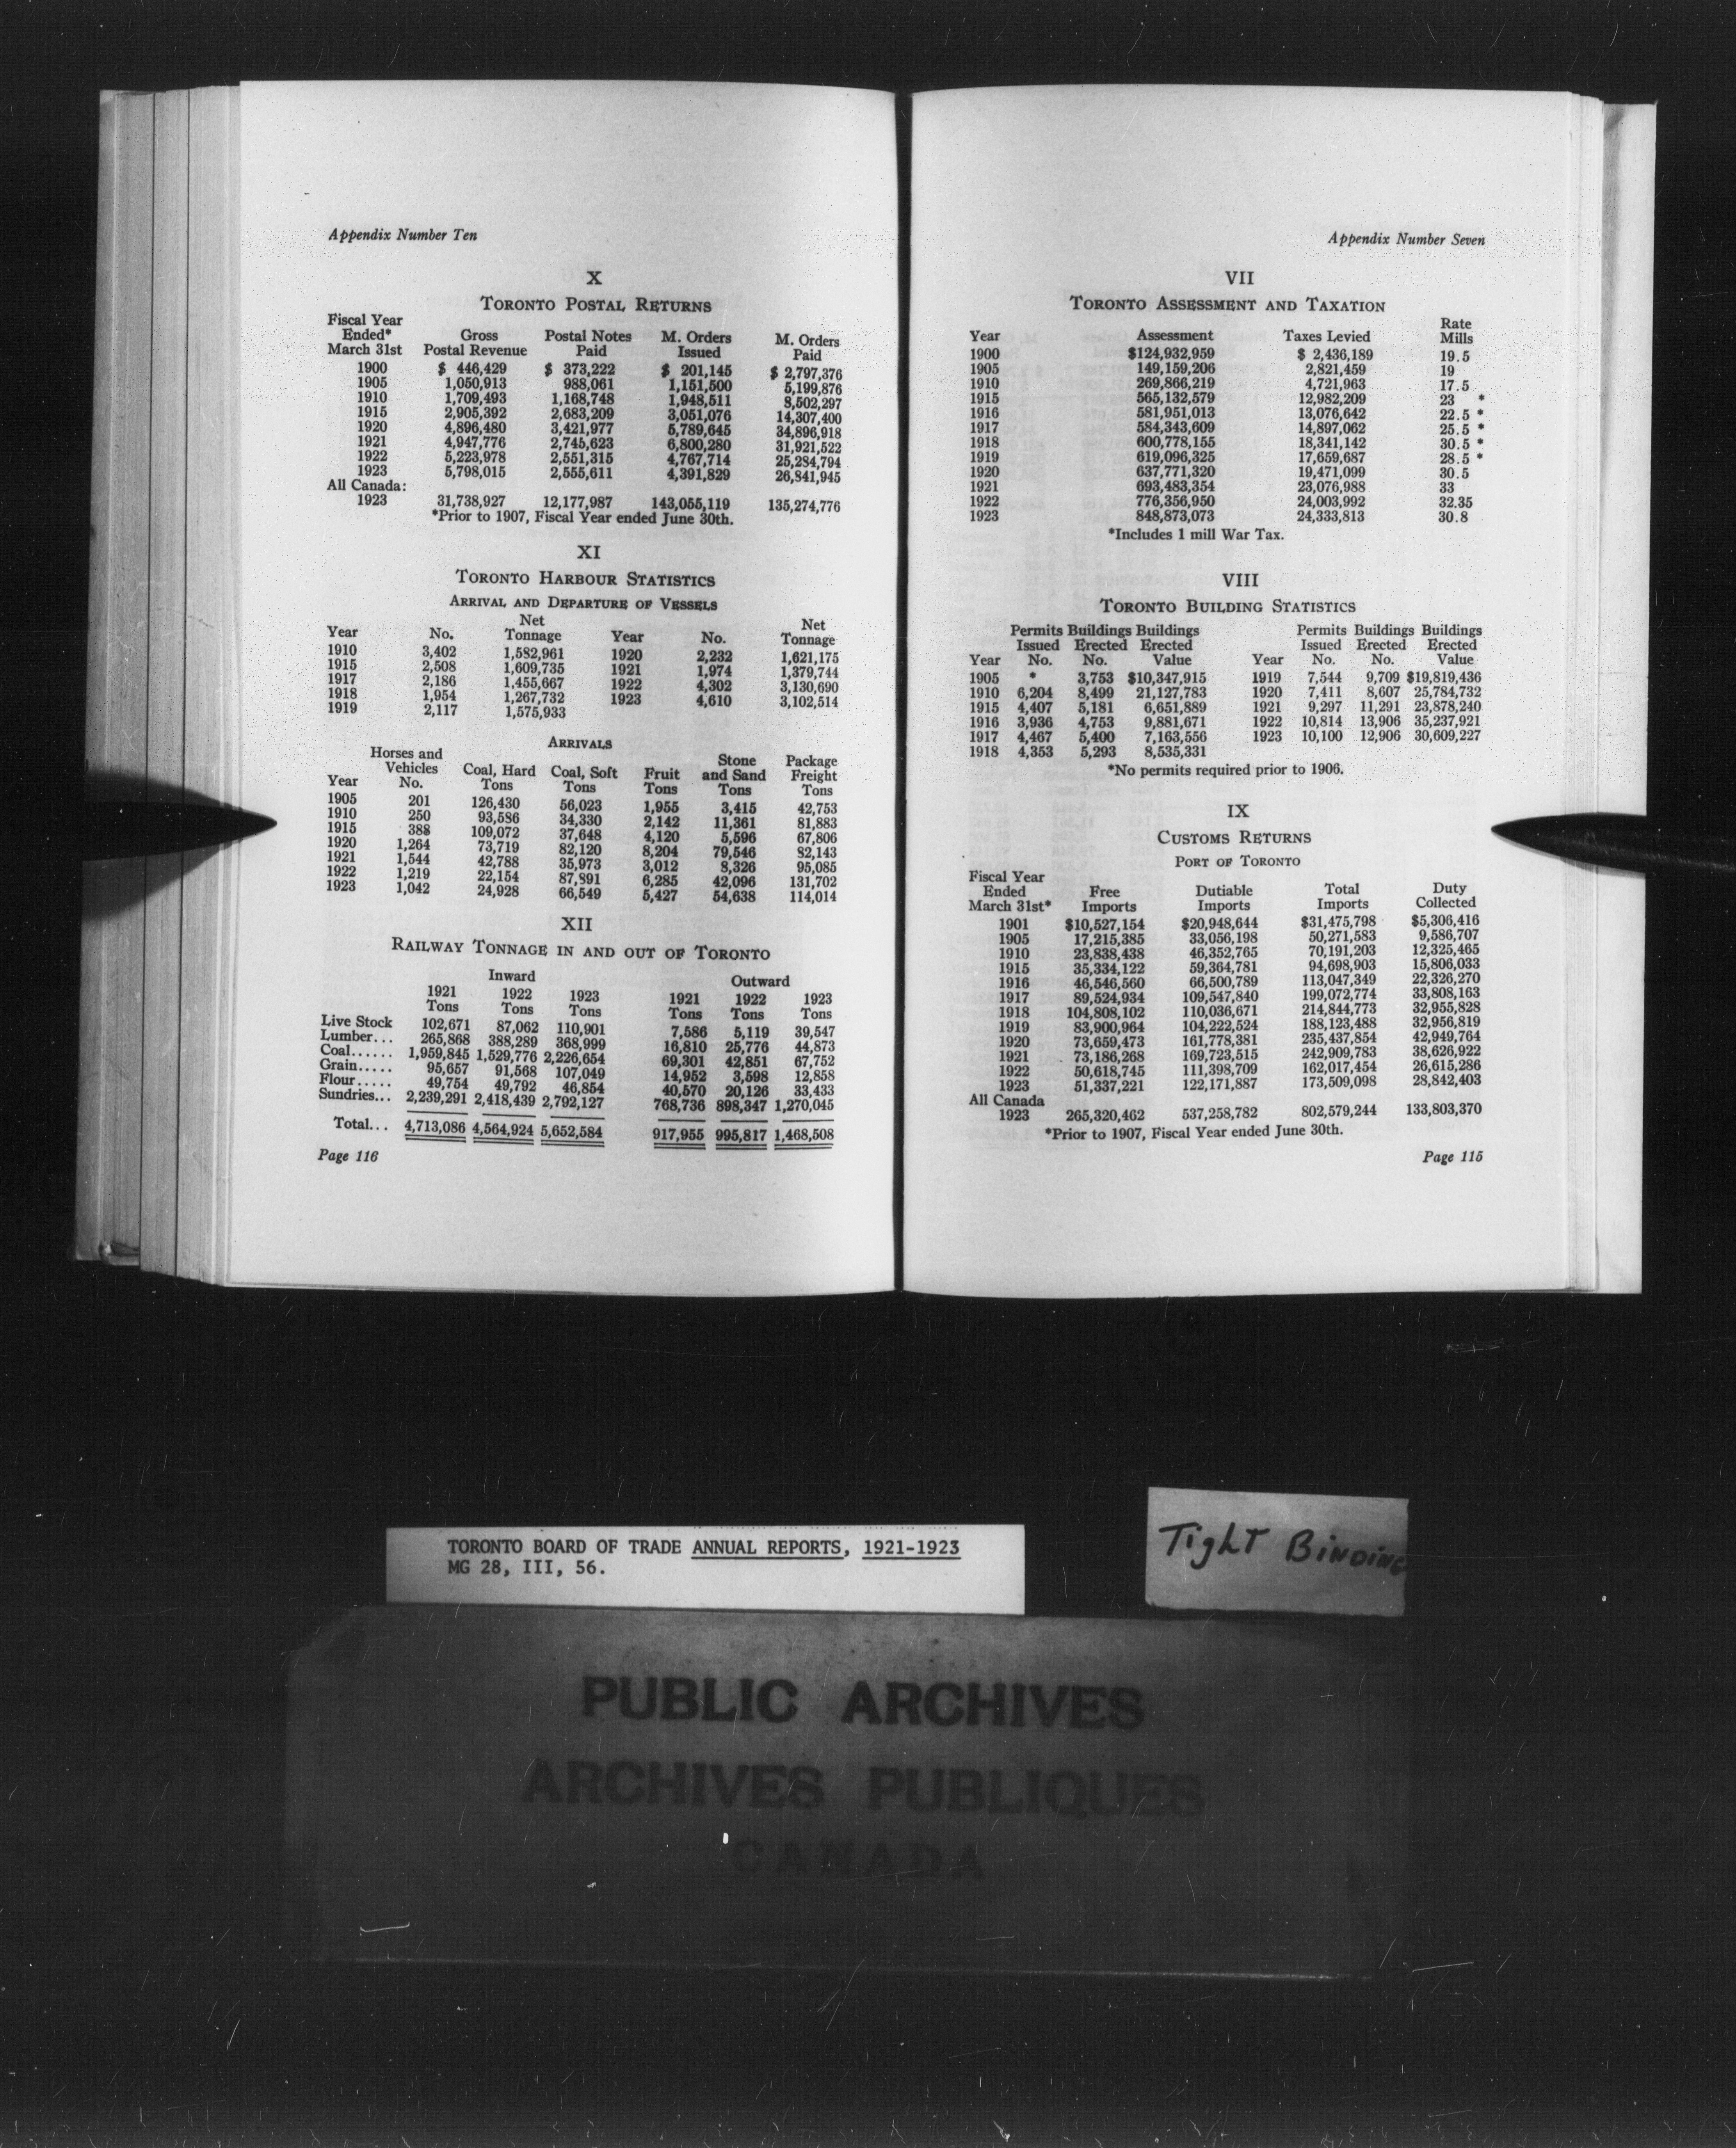 Appendix Number Ten
X
TORONTO POSTAL RETURNS
Fiscal Year Ended* March 31st Gross Postal Revenue Postal Notes Paid M. Orders Issued M. Orders Paid
1900 $ 446,429 $ 373,222 $ 201,145 $ 2,797,376
1905 1,050,913 988,061 1,151,500 5,199,876
1910 1,709,493 1,168,748 1,948,511 8,502,297
1915 2,905,392 2,683,209 3,051,076 14,307,400
1920 4,896,480 3,421,977 5,789,645 34,896,918
1921 4,947,776 2,745,623 6,800,280 31,921,522
1922 5,223,978 2,551,315 4,767,714 25,284,794
1923 5,798,015 2,555,611 4,391,829 26,841,945
All Canada:
1923 31,738,927 12,177,987 143,055,119 135,274,776
*Prior to 1907, Fiscal Year ended June 30th.
XI
TORONTO HARBOUR STATISTICS
ARRIVAL AND DEPARTURE OF VESSELS
Year No. Net Tonnage Year No. Net Tonnage
1910 3,402 1,582,961 1920 2,232 1,621,175
1915 2,508 1,609,735 1921 1,974 1,379,744
1917 2,186 1,455,667 1922 4,302 3,130,690
1918 1,954 1,267,732 1923 4,610 3,102,514
1919 2,117 1,575,933
ARRIVALS
Year Horses and Vehicles No. Coal, Hard Tons Coal, Soft Tons Fruit Tons Stone and Sand Tons Package Freight Tons
1905 201 126,430 56,023 1,955 3,415 42,753
1910 250 93,586 34,330 2,142 11,361 81,883
1915 388 109,072 37,648 4,120 5,596 67,806
1920 1,264 73,719 82,120 8,204 79,546 82,143
1921 1,544 42,788 35,973 3,012 8,326 95,085
1922 1,219 22,154 87,891 6,285 42,096 131,702
1923 1,042 24,928 66,549 5,427 54,638 114,014
XII
RAILWAY TONNAGE IN AND OUT OF TORONTO
Inward Outward
1921 Tons 1922 Tons 1923 Tons 1921 Tons 1922 Tons 1923 Tons
Live Stock 102,671 87,062 110,901 7,586 5,119 39,547
Lumber... 265,868 388,289 368,999 16,810 25,776 44,873
Coal...... 1,959,845 1,529,776 2,226,654 69,301 42,851 67,752
Grain..... 95,657 91,568 107,049 14,952 3,598 12,858
Flour..... 49,754 49,792 46,854 40,570 20,126 33,433
Sundries... 2,239,291 2,418,439 2,792,127 768,736 898,347 1,270,045
Total... 4,713,086 4,564,924 5,652,584 917,955 995,817 1,468,508
Page 116
Appendix Number Seven
VII
TORONTO ASSESSMENT AND TAXATION
Year Assessment Taxes Levied Rate Mills
1900 $124,932,959 $ 2,436,189 19.5
1905 149,159,206 2,821,459 19
1910 269,866,219 4,721,963 17.5
1915 565,132,579 12,982,209 23 *
1916 581,951,013 13,076,642 22.5 *
1917 584,343,609 14,897,062 25.5 *
1918 600,778,155 18,341,142 30.5 *
1919 619,096,325 17,659,687 28.5 *
1920 637,771,320 19,471,099 30.5
1921 693,483,354 23,076,988 33
1922 776,356,950 24,003,992 32.35
1923 848,873,073 24,333,813 30.8
*Includes 1 mill War Tax.
VIII
TORONTO BUILDING STATISTICS
Permits Buildings Buildings Permits Buildings Buildings
Issued Erected Erected Issued Erected Erected
Year No. No. Value Year No. No. Value
1905 * 3,753 $10,347,915 1919 7,544 9,709 $19,819,436
1910 6,204 8,499 21,127,783 1920 7,411 8,607 25,784,732
1915 4,407 5,181 6,651,889 1921 9,297 11,291 23,878,240
1916 3,936 4,753 9,881,671 1922 10,814 13,906 35,237,921
1917 4,467 5,400 7,163,556 1923 10,100 12,906 30,609,227
1918 4,353 5,293 8,535,331
*No permits required prior to 1906.
IX
CUSTOMS RETURNS
PORT OF TORONTO
Fiscal Year Ended March 31st* Free Imports Dutiable Imports Total Imports Duty Collected
1901 $10,527,154 $20,948,644 $31,475,798 $5,306,416
1905 17,215,385 33,056,198 50,271,583 9,586,707
1910 23,838,438 46,352,765 70,191,203 12,325,465
1915 35,334,122 59,364,781 94,698,903 15,806,033
1916 46,546,560 66,500,789 113,047,349 22,326,270
1917 89,524,934 109,547,840 199,072,774 33,808,163
1918 104,808,102 110,036,671 214,844,773 32,955,828
1919 83,900,964 104,222,524 188,123,488 32,956,819
1920 73,659,473 161,778,381 235,437,854 42,949,764
1921 73,186,268 169,723,515 242,909,783 38,626,922
1922 50,618,745 111,398,709 162,017,454 26,615,286
1923 51,337,221 122,171,887 173,509,098 28,842,403
All Canada
1923 265,320,462 537,258,782 802,579,244 133,803,370
*Prior to 1907, Fiscal Year ended June 30th.
Page 115
TORONTO BOARD OF TRADE ANNUAL REPORTS, 1921-1923
MG 28, III, 56.
Tight Binding
PUBLIC ARCHIVES
ARCHIVES PUBLIQUES
CANADA